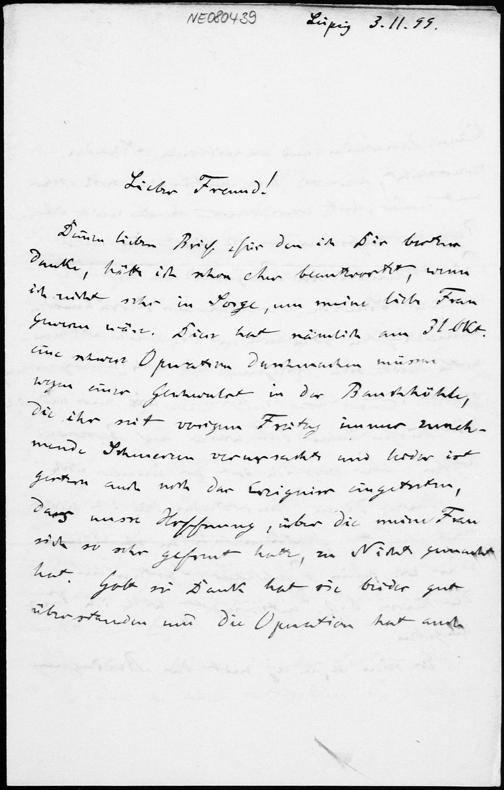 NE080439
Leipzig 3.11.99.
Lieber Freund!
Deinen lieben Brief, für den ich Dir bestens
danke, hätte ich schon eher beantwortet, wenn
ich nicht sehr in Sorge, um meine liebe Frau
gewesen wäre. Diese hat nämlich am 31 Okt.
eine schwere Operation durchmachen müssen
wegen einer Geschwulst in der Bauchhöhle,
die ihr seit vorigem Freitag immer zuneh-
mende Schmerzen verursachte und leider ist
gestern auch noch das Ereignis eingetreten,
dass unsre Hoffnung, über die meine Frau
sich so sehr gefreut hatte, zu Nichts gemacht
hat. Gott sei Dank hat sie beides gut
überstanden und die Operation hat auch